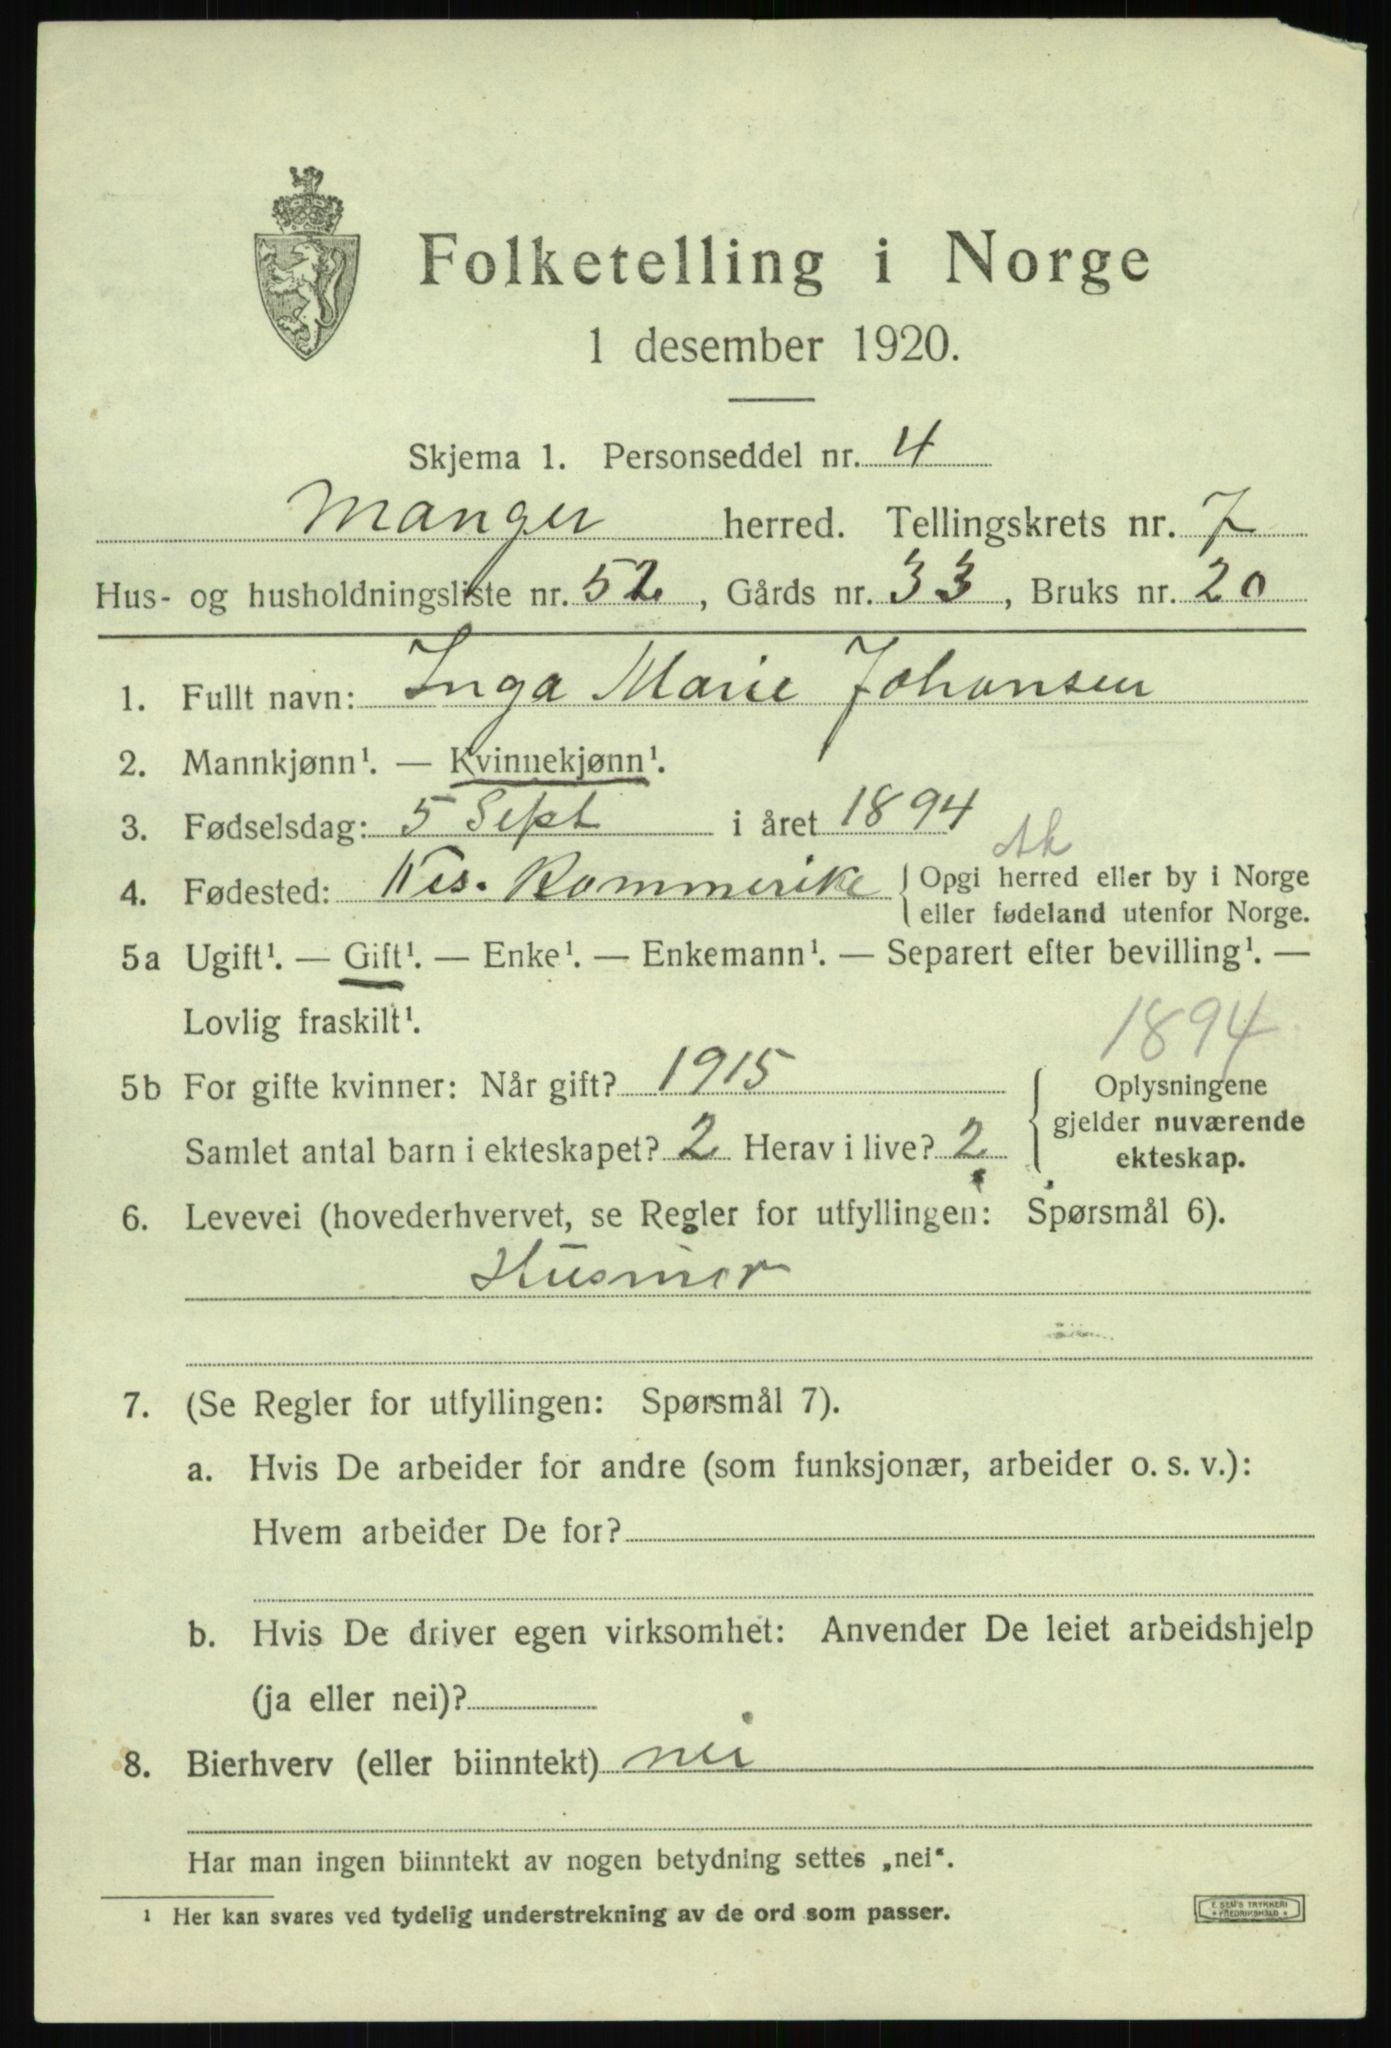 Folketelling i Norge
1 desember 1920.
Skjema 1. Personseddel nr. 4
Manger herred. Tellingskrets nr. 7
Hus- og husholdningsliste nr. 52, Gårds nr. 33, Bruks nr. 20
1. Fullt navn: Inga Marie Johansen
2. Mannkjønn¹. — Kvinnekjønn¹.
3. Fødselsdag: 5 Sept i året 1894
Ak
4. Fødested: Nes. Rommerike { Opgi herred eller by i Norge
eller fødeland utenfor Norge.
5a Ugift¹. — Gift¹. — Enke¹. — Enkemann¹. — Separert efter bevilling¹. —
Lovlig fraskilt¹.
1894
5b For gifte kvinner: Når gift? 1915
Samlet antal barn i ekteskapet? 2 Herav i live? 2
{ Oplysningene
gjelder nuværende
ekteskap.
6. Levevei (hovederhvervet, se Regler for utfyllingen: Spørsmål 6).
Husmor
7. (Se Regler for utfyllingen: Spørsmål 7).
a. Hvis De arbeider for andre (som funksjonær, arbeider o. s. v.):
Hvem arbeider De for?
b. Hvis De driver egen virksomhet: Anvender De leiet arbeidshjelp
(ja eller nei)?
8. Bierhverv (eller biinntekt) nei
Har man ingen biinntekt av nogen betydning settes „nei“.
¹ Her kan svares ved tydelig understrekning av de ord som passer.
E. SEM'S TRYKKERI
FREDRIKSHALD